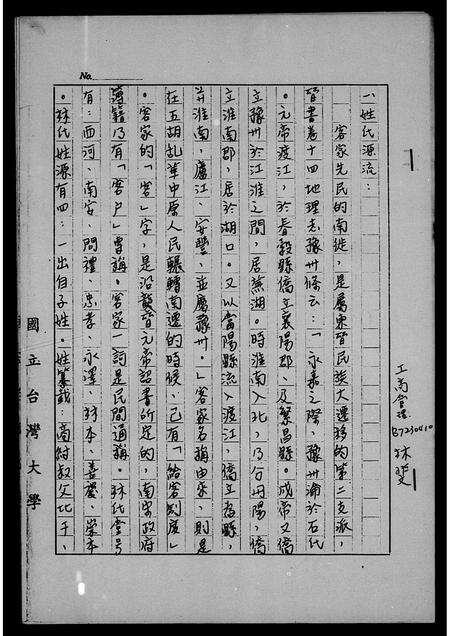 No.
一、姓氏源流：
客家先民的南徙，是屬東晉民族大遷移的第二支派，
晉書卷十四地理志豫州條云：「永嘉之際，豫州淪於石氏
。元帝渡江，於春穀縣僑立襄陽郡，及繁昌縣。成帝又僑
立豫州於江淮之間，居蕪湖。時淮南入北，乃分丹陽，僑
立淮南郡，居於湖口。又以當陽縣流入渡江，僑立為縣，
并淮南、廬江、安豐，並屬豫州。」客家名稱由來，則是
在五胡亂華中原人民輾轉南遷的時候，已有「給客制度」
。客家的「客」字，是沿襲晉元帝詔書所定的，南宋政府
簿籍乃有「客戶」專稱。客家一詞是民間通稱。林氏堂號
有：西河、南安、問禮、忠孝、永澤、林本、善慶、崇本
。林氏姓源有四：一出自子姓。姓纂載：商紂叔父比干、
工商會理
B7230410
林斐
國立台灣大學